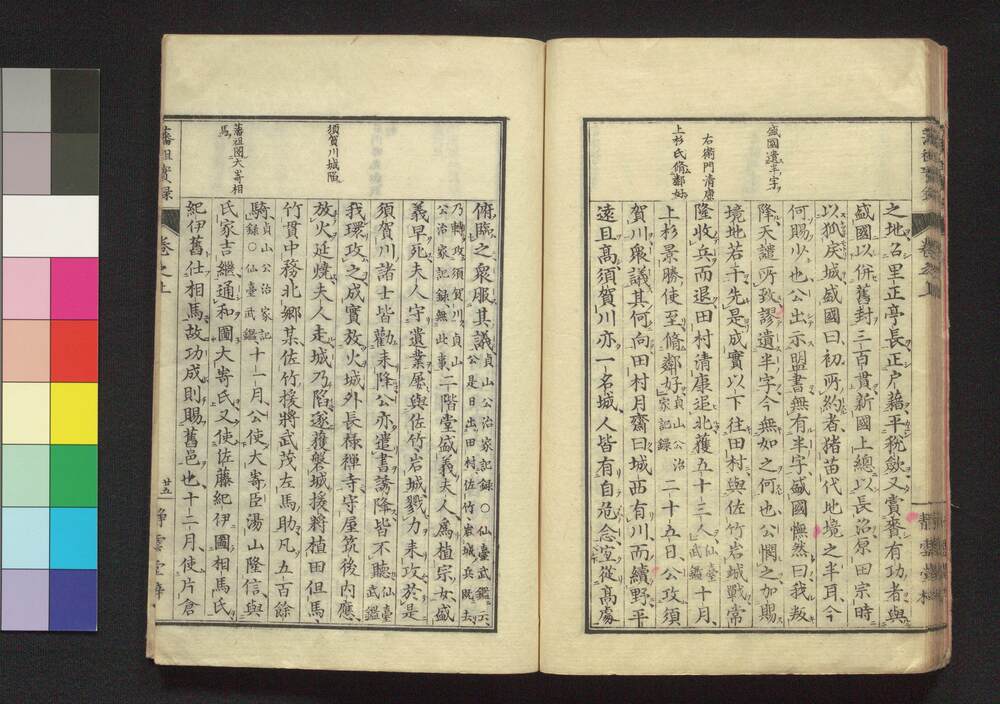 盛國遺半字
右衛門清康
上杉氏脩鄰好
之地名里正亭長正戸藉平稅斂又賞賚有功者與
盛國以併舊封三百貫新國上總以長沼原田宗時
以狐戾城盛國曰初所約者猪苗代地境之半耳今
何賜少也公出示盟書無有半字盛國憮然曰我叛
降天譴所致謬遺半字今無如之何也公憫之加賜
境地若干先是成實以下往田村與佐竹岩城戰常
隆收兵而退田村清康追北獲五十三人仙臺武鑑十月
上杉景勝使至脩鄰好貞山公治家記録二十五日公攻須
賀川衆議其何向田村月齋曰城西有川而續野平
遠且高須賀川亦一名城人皆有自危念宜從高處
藩祖實録
卷之上
廿五
靜雲堂梓
須賀川城陷
藩祖圖大㟢相
馬
俯臨之衆服其議貞山公治家記録○仙臺武鑑云
公是日出田村佐竹岩城兵既去
乃轉攻須賀川貞山
公治家記録無此事二階堂盛義夫人為植宗女盛
義早死夫人守遺業屢與佐竹岩城戮力来攻於是
須賀川諸士皆勸来降公亦遣書諭降皆不聽仙臺武鑑
我環攻之成實放火城外長禄禪寺守屋筑後内應
放火延燒夫人走城乃陷遂獲磐城援將植田但馬
竹貫中務北郷某佐竹援將武茂左馬助凡五百餘
騎貞山公治家記録○仙臺武鑑十一月公使大㟢臣湯山隆信與
氏家吉繼通和圖大㟢氏又使佐藤紀伊圖相馬氏
紀伊舊仕相馬故功成則賜舊邑也十二月使片倉